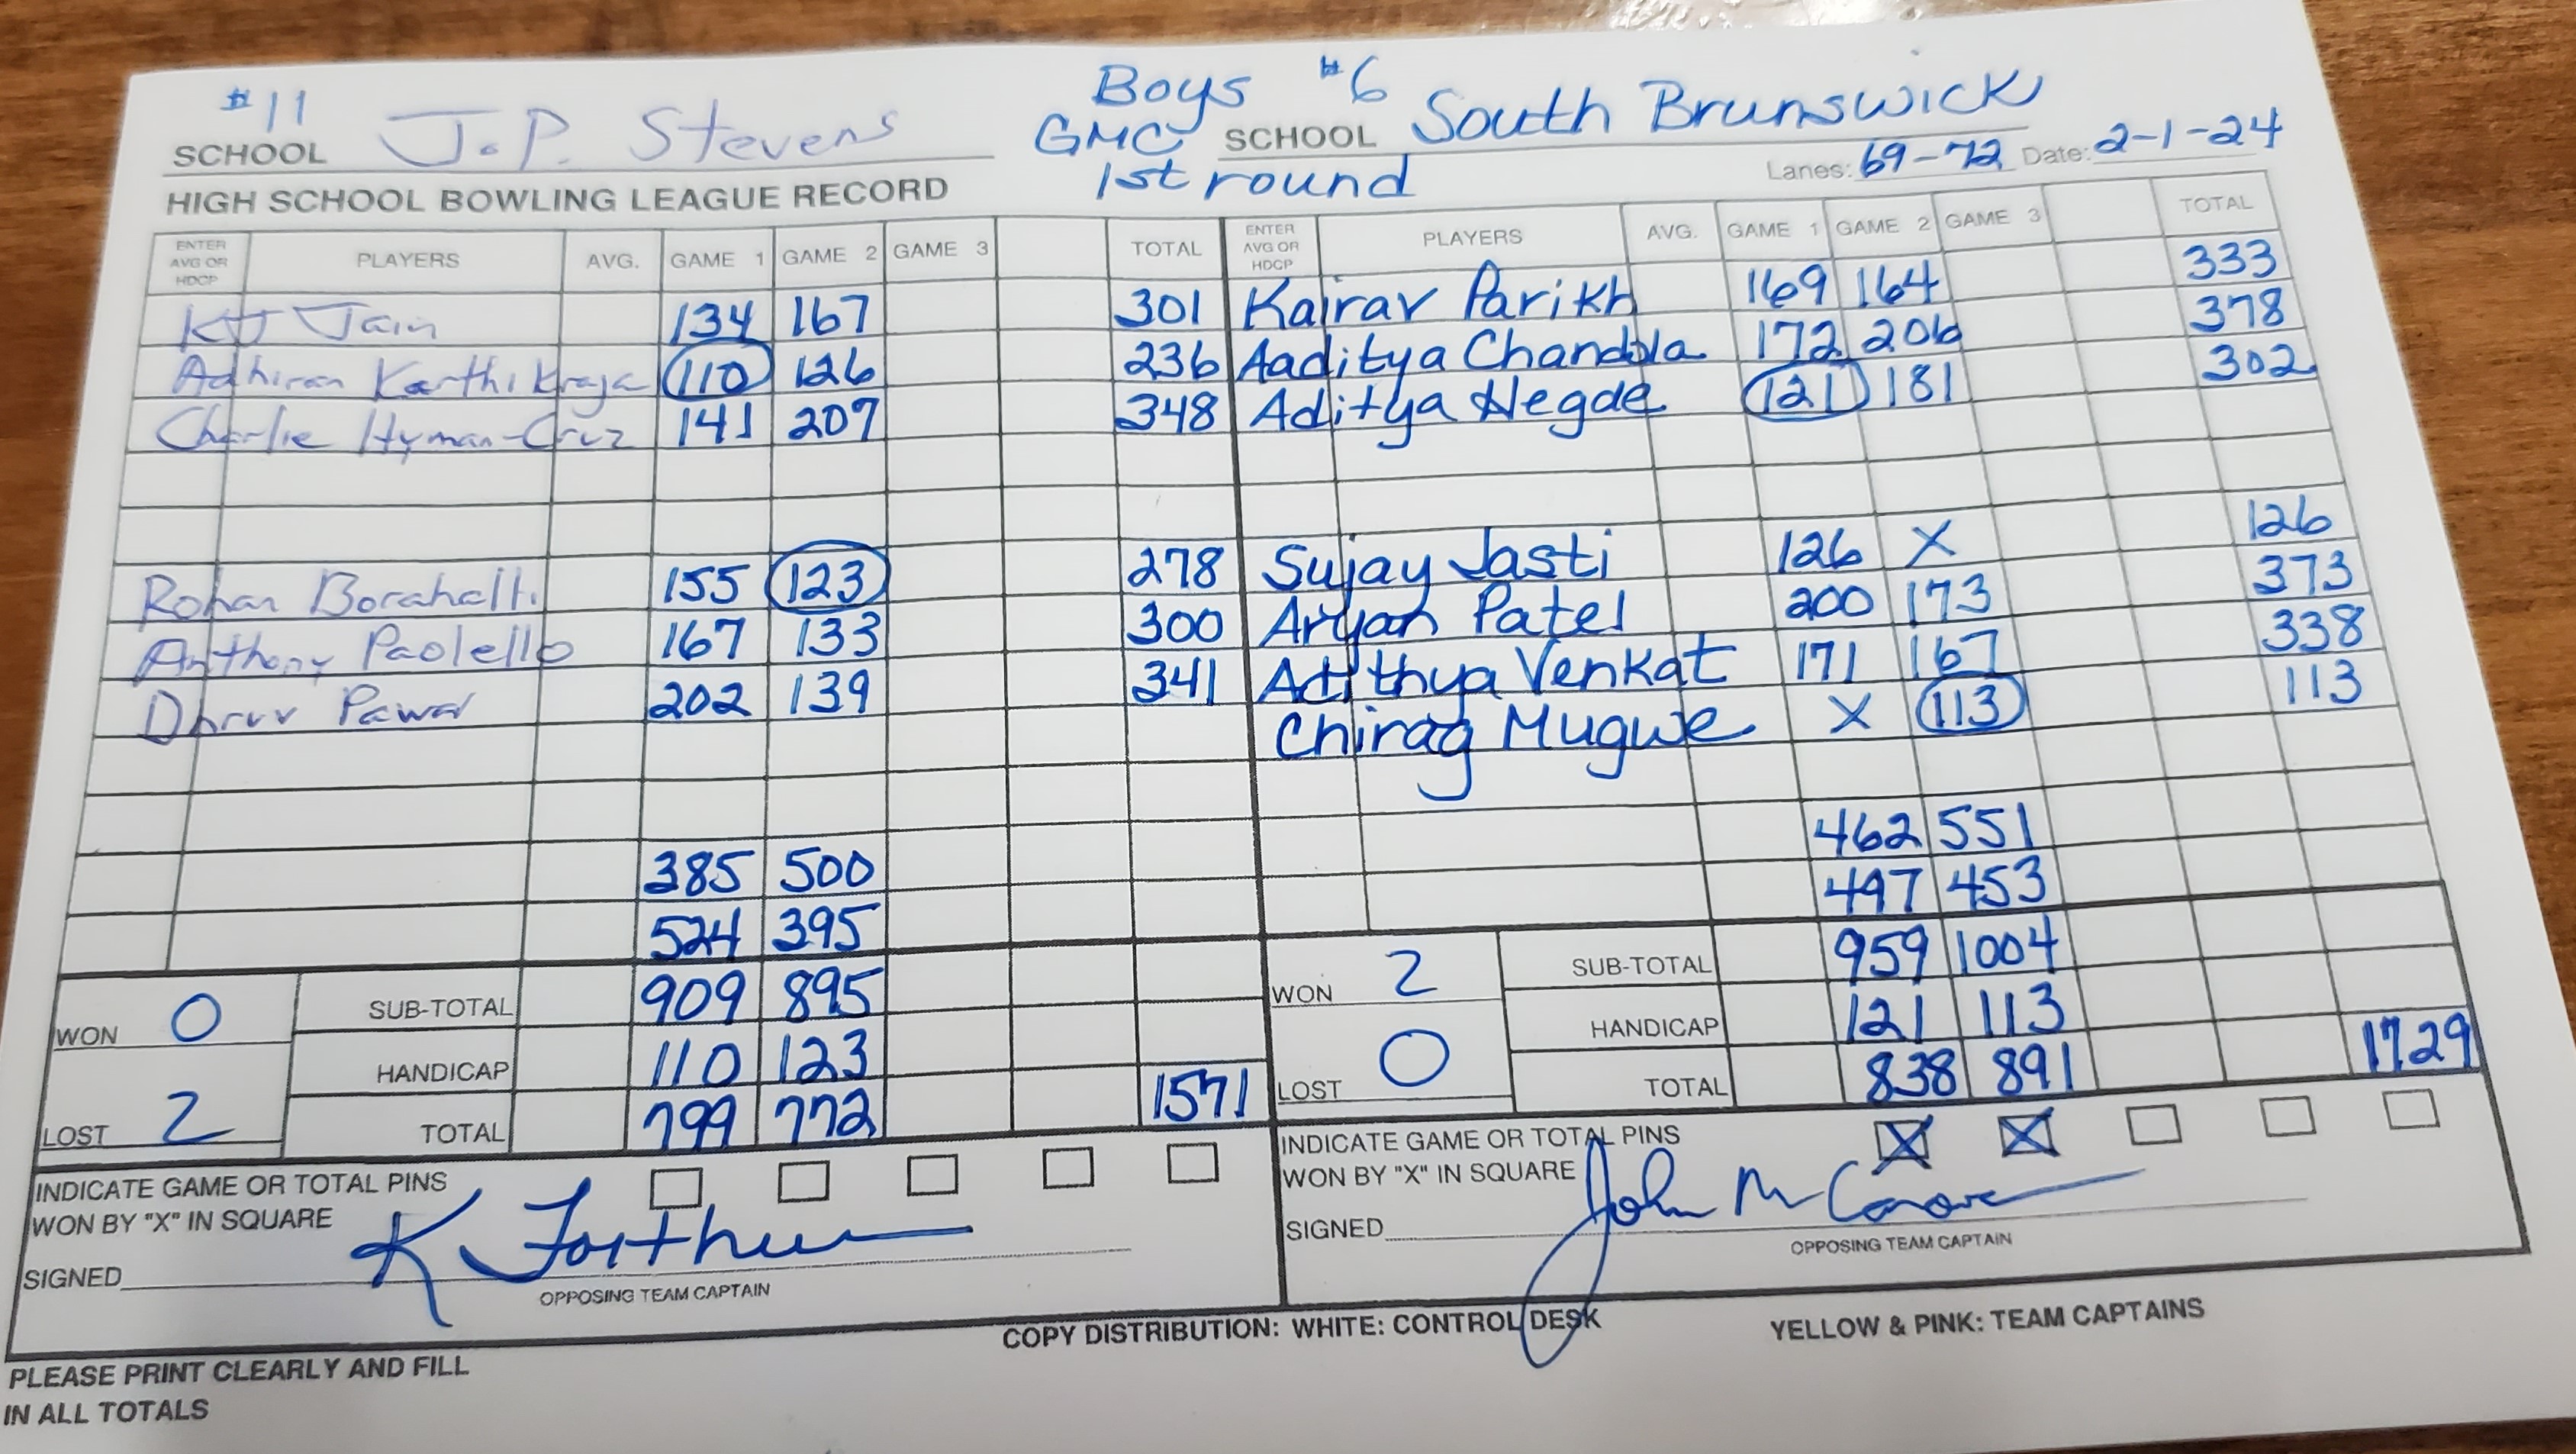 #11 Boys #6
SCHOOL J.P. Stevens GMC SCHOOL South Brunswick
1st round Lanes: 69-72 Date: 2-1-24
HIGH SCHOOL BOWLING LEAGUE RECORD
ENTER AVG OR HDCP PLAYERS AVG. GAME 1 GAME 2 GAME 3 TOTAL ENTER AVG OR HDCP PLAYERS AVG. GAME 1 GAME 2 GAME 3 TOTAL
KJ Jain 134 167 301 Kairav Parikh 169 164 333
Adhiran Karthikraja 110 126 236 Aaditya Chandola 172 206 378
Charlie Hyman-Cruz 141 207 348 Aditya Hegde 121 181 302
Rohan 155 123 278 Sujay Jasti 126 X 126
Anthony Paolello 167 133 300 Aryan Patel 200 173 373
Dhruv Pawar 202 139 341 Adithya Venkat 171 167 338
Chirag Mugwe X 113 113
385 500 462 551
524 395 497 453
WON 0 SUB-TOTAL 909 895 WON 2 SUB-TOTAL 959 1004
HANDICAP 110 123 HANDICAP 121 113
LOST 2 TOTAL 799 772 1571 LOST 0 TOTAL 838 891 1729
INDICATE GAME OR TOTAL PINS INDICATE GAME OR TOTAL PINS X X
WON BY "X" IN SQUARE WON BY "X" IN SQUARE
SIGNED K SIGNED John
OPPOSING TEAM CAPTAIN OPPOSING TEAM CAPTAIN
COPY DISTRIBUTION: WHITE: CONTROL DESK YELLOW & PINK: TEAM CAPTAINS
PLEASE PRINT CLEARLY AND FILL
IN ALL TOTALS